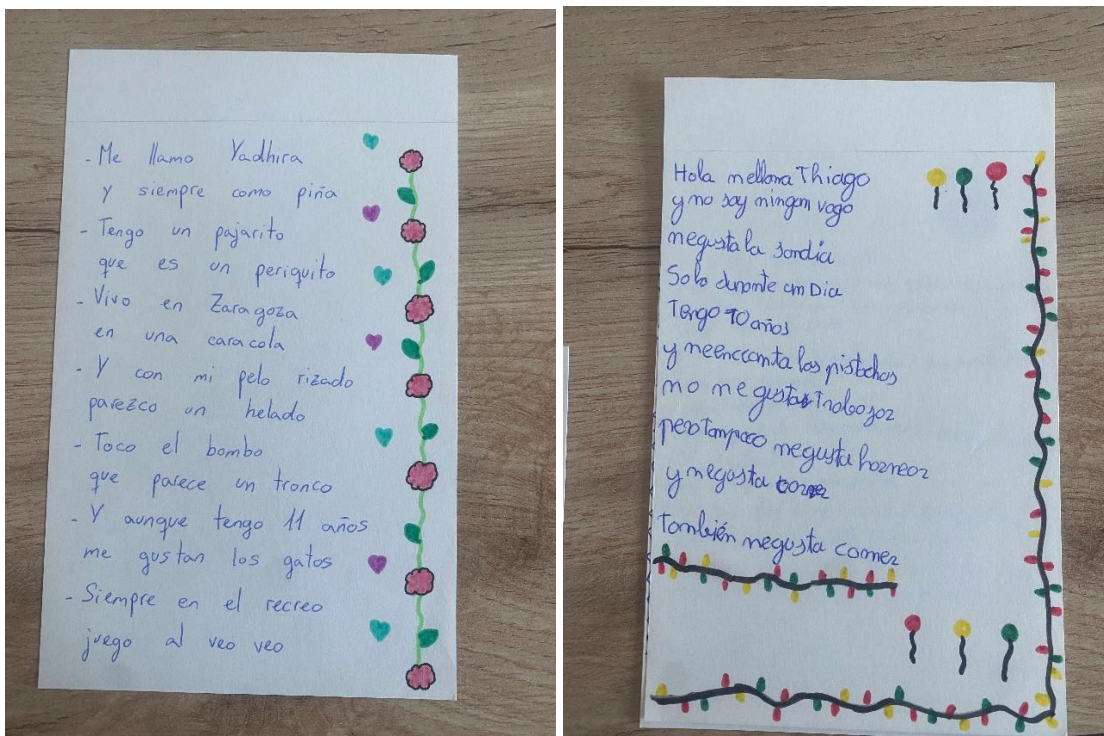 - Me llamo Yadhira
y siempre como piña
- Tengo un pajarito
que es un periquito
- Vivo en Zaragoza
en una caracola
- Y con mi pelo rizado
parezco un helado
- Toco el bombo
que parece un tronco
- Y aunque tengo 11 años
me gustan los gatos
- Siempre en el recreo
juego al veo veo
Hola mellama Thiago
y no soy ningun vago
megusta la sandía
Solo durante un Dia
Tengo 10 años
y meencanta los pistachos
no me gusta trabajar
pero tampoco megusta hornear
y megusta correr
también megusta comer